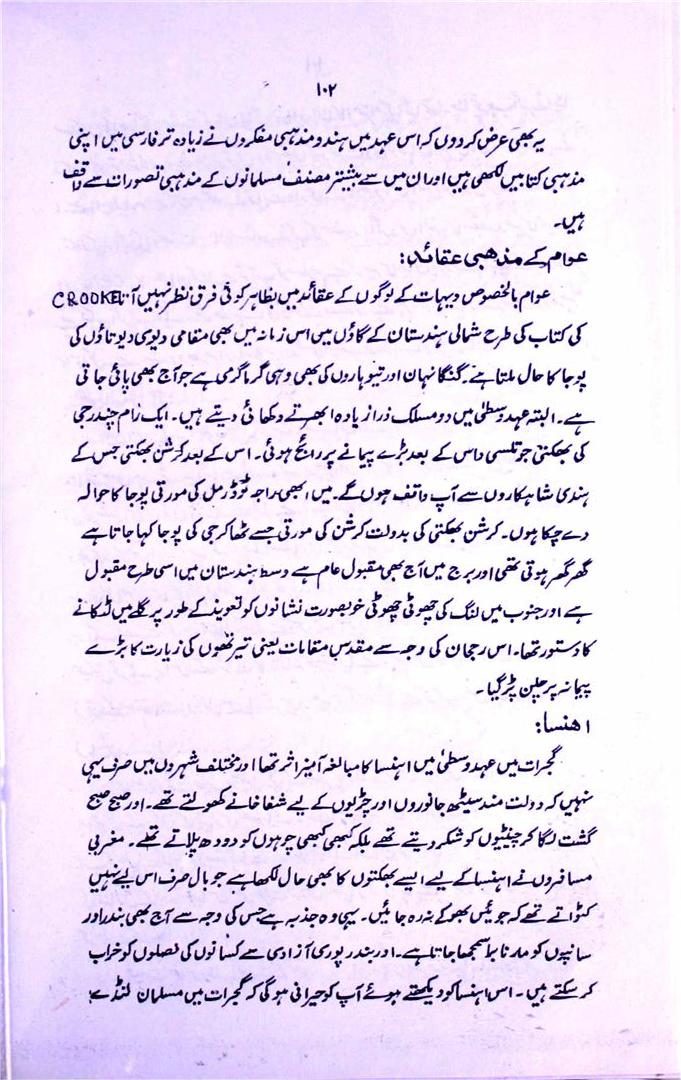 ۱۰۲
یہ بھی عرض کر دوں کہ اس عہد میں ہندو مذہبی مفکروں نے زیادہ تر فارسی میں اپنی
مذہبی کتابیں لکھی ہیں اور ان میں سے بیشتر مصنف مسلمانوں کے مذہبی تصورات سے واقف
ہیں۔
عوام کے مذھبی عقائد:
عوام بالخصوص دیہات کے لوگوں کے عقائد میں بظاہر کوئی فرق نظر نہیں آتا CROOKE
کی کتاب کی طرح شمالی ہندستان کے گاؤں میں اس زمانہ میں بھی مقامی دیوی دیوتاؤں کی
پوجا کا حال ملتا ہے۔ گنگا نہان اور تیوہاروں کی بھی وہی گرما گرمی ہے جو آج بھی پائی جاتی
ہے۔ البتہ عہد وسطیٰ میں دو مسلک ذرا زیادہ ابھرتے دکھائی دیتے ہیں۔ ایک رام چندر جی
کی بھکتی جو تلسی داس کے بعد بڑے پیمانے پر رائج ہوئی۔ اس کے بعد کرشن بھکتی جس کے
ہندی شاہکاروں سے آپ واقف ہوں گے۔ میں ابھی راجہ ٹوڈرمل کی مورتی پوجا کا حوالہ
دے چکا ہوں۔ کرشن بھکتی کی بدولت کرشن کی مورتی جسے ٹھاکر جی کی پوجا کہا جاتا ہے
گھر گھر ہوتی تھی اور برج میں آج بھی مقبول عام ہے وسط ہندستان میں اسی طرح مقبول
ہے اور جنوب میں لنگ کی چھوٹی چھوٹی خوبصورت نشانوں کو تعویذ کے طور پر گلے میں لٹکانے
کا دستور تھا۔ اس رجحان کی وجہ سے مقدس مقامات یعنی تیرتھوں کی زیارت کا بڑے
پیمانہ پر چلن پڑ گیا۔
اھنسا:
گجرات میں عہد وسطیٰ میں اہنسا کا مبالغہ آمیز اثر تھا اور مختلف شہروں میں صرف یہی
نہیں کہ دولت مند سیٹھ جانوروں اور چڑیوں کے لیے شفا خانے کھولتے تھے۔ اور صبح صبح
گشت لگا کر چنٹیوں کو شکر دیتے تھے بلکہ کبھی کبھی چوہوں کو دودھ پلاتے تھے۔ مغربی
مسافروں نے اہنسا کے لیے ایسے بھکتوں کا بھی حال لکھا ہے جو بال صرف اس لیے نہیں
کٹواتے تھے کہ جوئیں بھوکے نہ رہ جائیں۔ یہی وہ جذبہ ہے جس کی وجہ سے آج بھی بندر اور
سانپوں کو مارنا برا سمجھا جاتا ہے۔ اور بندر پوری آزادی سے کسانوں کی فصلوں کو خراب
کر سکتے ہیں۔ اس اہنسا کو دیکھتے ہوئے آپ کو حیرانی ہوگی کہ گجرات میں مسلمان لنڈے